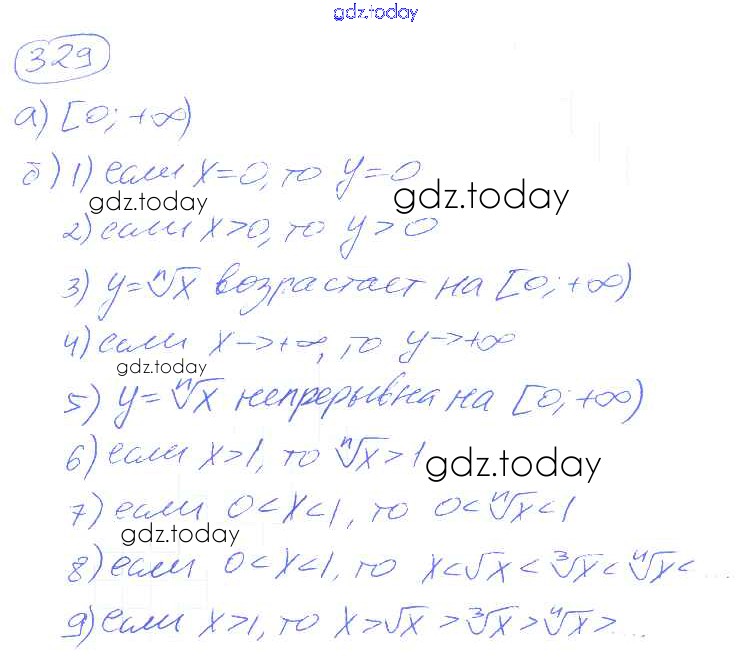 gdz.today
329
а) [0; +∞)
б) 1) если x=0, то y=0
gdz.today gdz.today
2) если x>0, то y>0
3) y=ⁿ√x возрастает на [0; +∞)
4) если x→+∞, то y→+∞
gdz.today
5) y=ⁿ√x непрерывна на [0; +∞)
6) если x>1, то ⁿ√x>1
gdz.today
7) если 0<x<1, то 0<ⁿ√x<1
gdz.today
8) если 0<x<1, то x<√x<³√x<⁴√x<...
9) если x>1, то x>√x>³√x>⁴√x>...